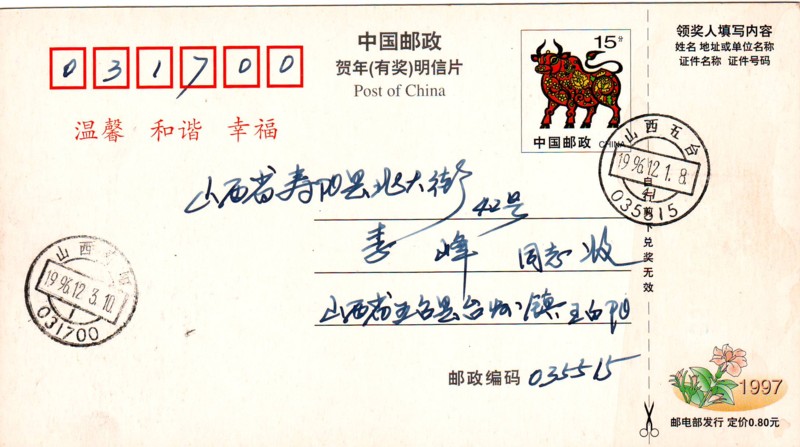 中国邮政
贺年(有奖)明信片
Post of China
031700
温馨 和谐 幸福
15分
中国邮政 CHINA
领奖人填写内容
姓名 地址或单位名称
证件名称 证件号码
山西五台
1996.12.1.8.
035515
自行剪下兑奖无效
山西省寿阳县北大街
42号
李峰 同志收
山西省五台县台怀镇王白阳
山西寿阳
1996.12.3.10.
1
031700
邮政编码 035515
1997
邮电部发行 定价0.80元